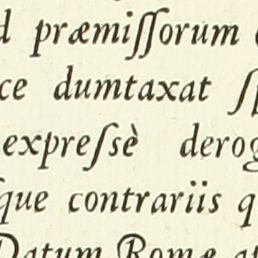 d præmiſſorum
ce dumtaxat ſp
expreſsè derog
ſque contrariis q
Datum Romæ a